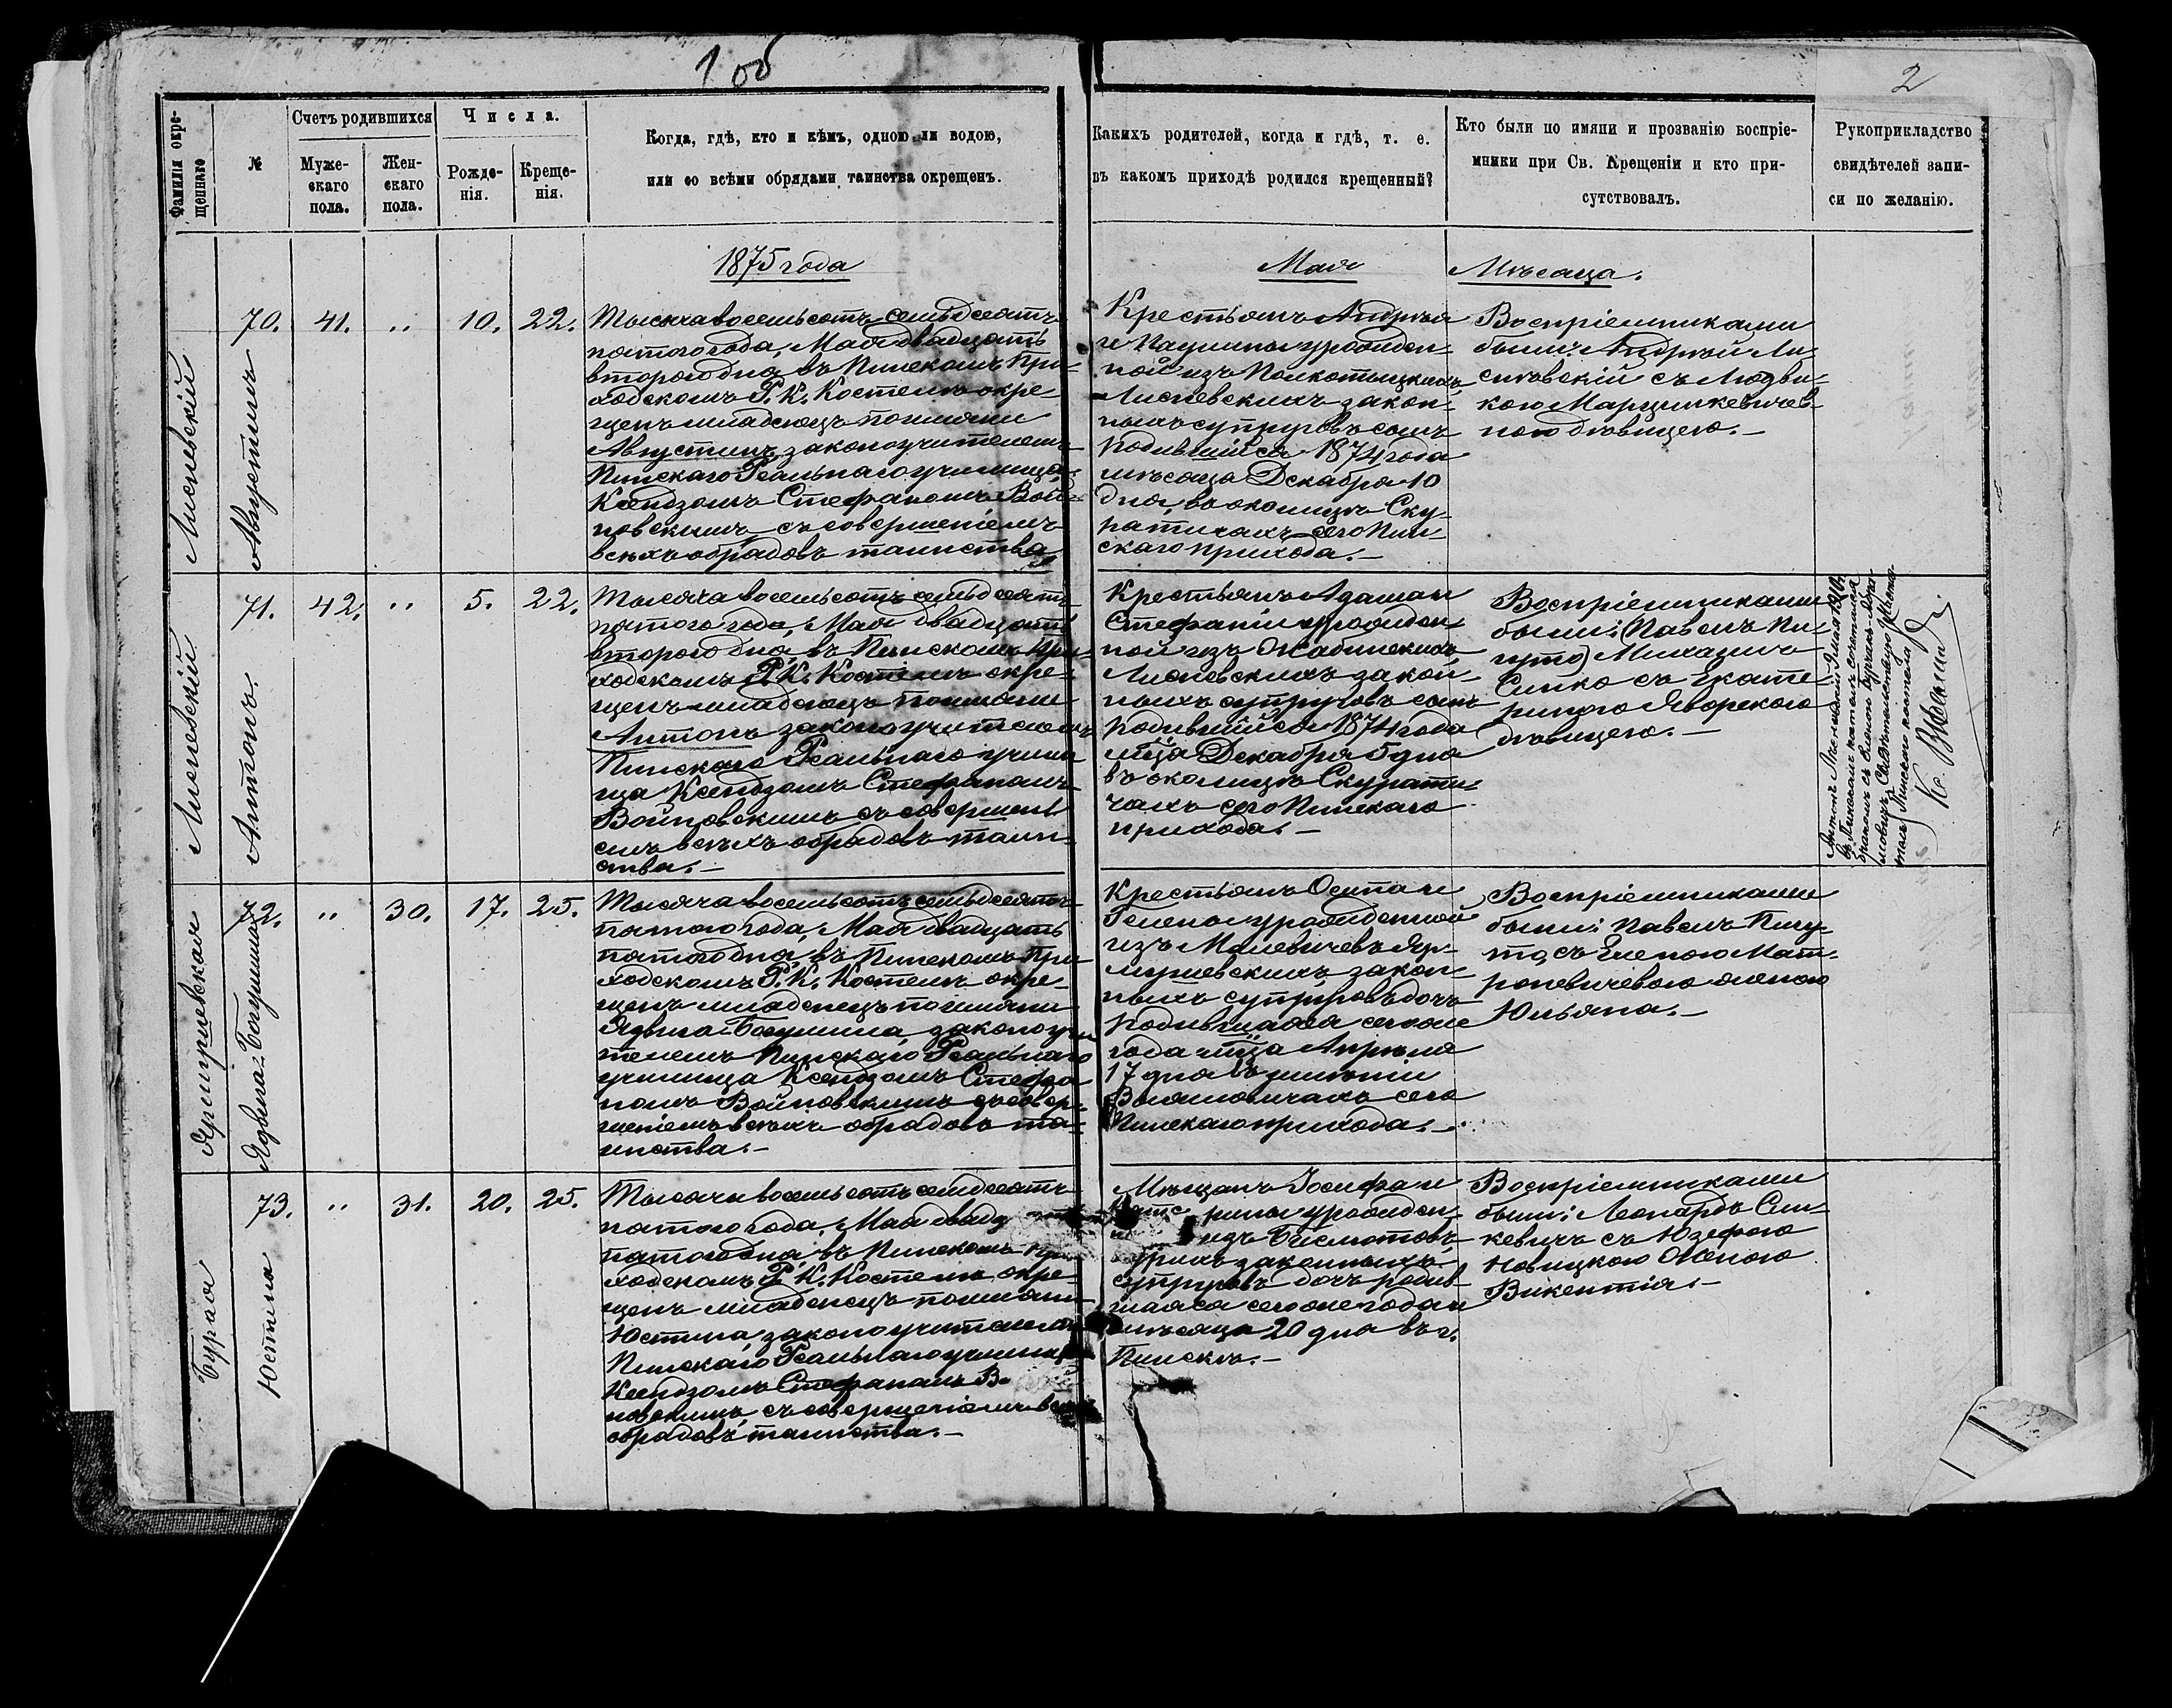 1 об
2
Фамилія окре-
щеннаго
№
Счетъ родившихся
Муже-
скаго
пола.
Жен-
скаго
пола.
Числа.
Рожде-
нія.
Креще-
нія.
Когда, гдѣ, кто и кѣмъ, одною ли водою,
или со всѣми обрядами таинства окрещенъ.
Какихъ родителей, когда и гдѣ, т. е.
въ какомъ приходѣ родился крещенный?
Кто были по имяни и прозванію воспріе-
мники при Св. Крещеніи и кто при-
сутствовалъ.
Рукоприкладство
свидѣтелей запи-
си по желанію.
1875 года
Мая
Мѣсяца.
Лисневскій
Августинъ
70. 41. „ 10. 22.
Тысяча восемьсотъ семьдесятъ
пятого года, Мая двадцать
второго дня въ Пинскомъ При-
ходскомъ Р. К. Костелѣ окре-
щенъ младенецъ по имяни
Августинъ законоучителемъ
Пинскаго Реальнаго училища
Ксендзомъ Стефаномъ Вой-
новскимъ съ совершеніемъ
всѣхъ обрядовъ таинства
Крестьянъ Андрея
и Паулины урожден-
ной изъ Полкотыцкихъ
Лисневскихъ закон-
ныхъ супруговъ сынъ
родившійся 1874 года
мѣсяца Декабря 10
дня, въ околицѣ Ску-
ратичахъ сего Пин-
скаго прихода.—
Воспріемниками
были: Андрей Ли-
сновскій съ Людви-
кою Марцинкевичев-
ною дѣвицею.—
Лисневскій
Антонъ.
71. 42. „ 5. 22.
Тысяча восемьсотъ семьдесятъ
пятого года, Мая двадцать
второго дня, въ Пинскомъ При-
ходскомъ Р. К. Костелѣ окре-
щенъ младенецъ по имяни
Антонъ законоучителемъ
Пинскаго Реальнаго учили
ща Ксендзомъ Стефаномъ
Войновскимъ съ совершені
емъ всѣхъ обрядовъ таин-
ства.—
Крестьянъ Адама и
Стефаніи урожден-
ной изъ Жабинскихъ
Лисневскихъ закон-
ныхъ супруговъ сынъ
родившійся 1874 года
мца Декабря 5 дня
въ околицѣ Скурати-
чахъ сего Пинскаго
прихода.—
Воспріемниками
были: (Павелъ Пи-
гуто) Михаилъ
Синко съ Екате-
риною Яворскою
дѣвицею.—
въ Пинскомъ костелѣ сочетался
бракомъ съ Еленою
Пинского костела
Кс.
Яримушевская
Ядвига-Богумила
72. „ 30. 17. 25.
Тысяча восемьсотъ семьдесятъ
пятого года, Мая двадцать
пятого дня, въ Пинскомъ При
ходскомъ Р. К. Костелѣ окре-
щенъ младенецъ по имяни
Ядвига-Богумила, законоучи
телемъ Пинскаго Реальнаго
училища Ксендзомъ Стефа
номъ Войновскимъ съ совер-
шеніемъ всѣхъ обрядовъ та-
инства.—
Крестьянъ Осипа и
Гелены урожденной
изъ Малевичевъ Яри-
мушевскихъ закон-
ныхъ супруговъ дочь
родившаяся сего же
года мца Апрѣля
17 дня въ имѣніи
сего
Пинскаго прихода.—
Воспріемниками
были: Павелъ Пигу-
то, съ Еленою Мат-
роневичевою женою
Юльяна.—
Бурая
Юстина
73. „ 31. 20. 25.
Тысяча восемьсотъ семьдесятъ
пятого года, Мая двадц
пятого дня, въ Пинскомъ При
ходскомъ Р. К. Костелѣ окре-
щенъ младенецъ по имяни
Юстина, законоучителемъ
Пинскаго Реальнаго училищ
Ксендзомъ Стефаномъ В
новскимъ, съ совершеніемъ всѣ
обрядовъ таинства.—
Мѣщанъ Іосифа и
рины урожден-
изъ
Бурыхъ законныхъ
супруговъ дочь родив
шаяся сего же года и
мѣсяца 20 дня въ г.
Пинскѣ.—
Воспріемниками
были: Леонардъ Син-
кевичъ съ Юзефою
Новицкою Женою
Викентія.—